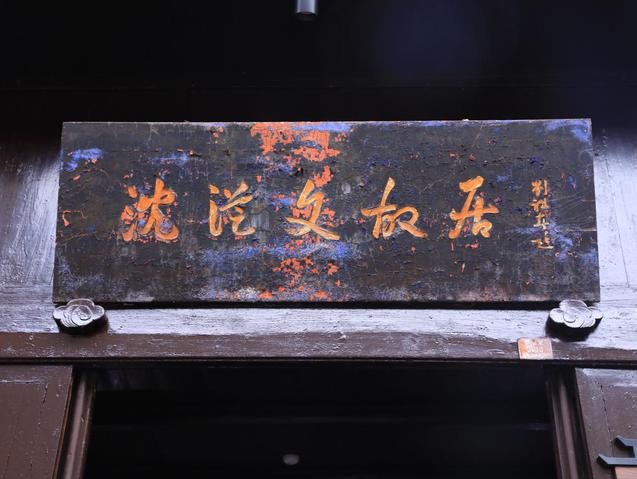 沈从文故居